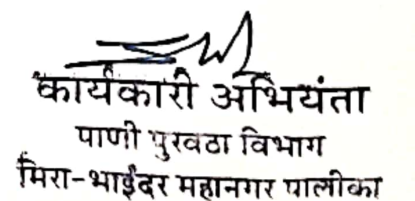 कार्यकारी अभियंता
पाणी पुरवठा विभाग
मिरा-भाईंदर महानगर पालीका